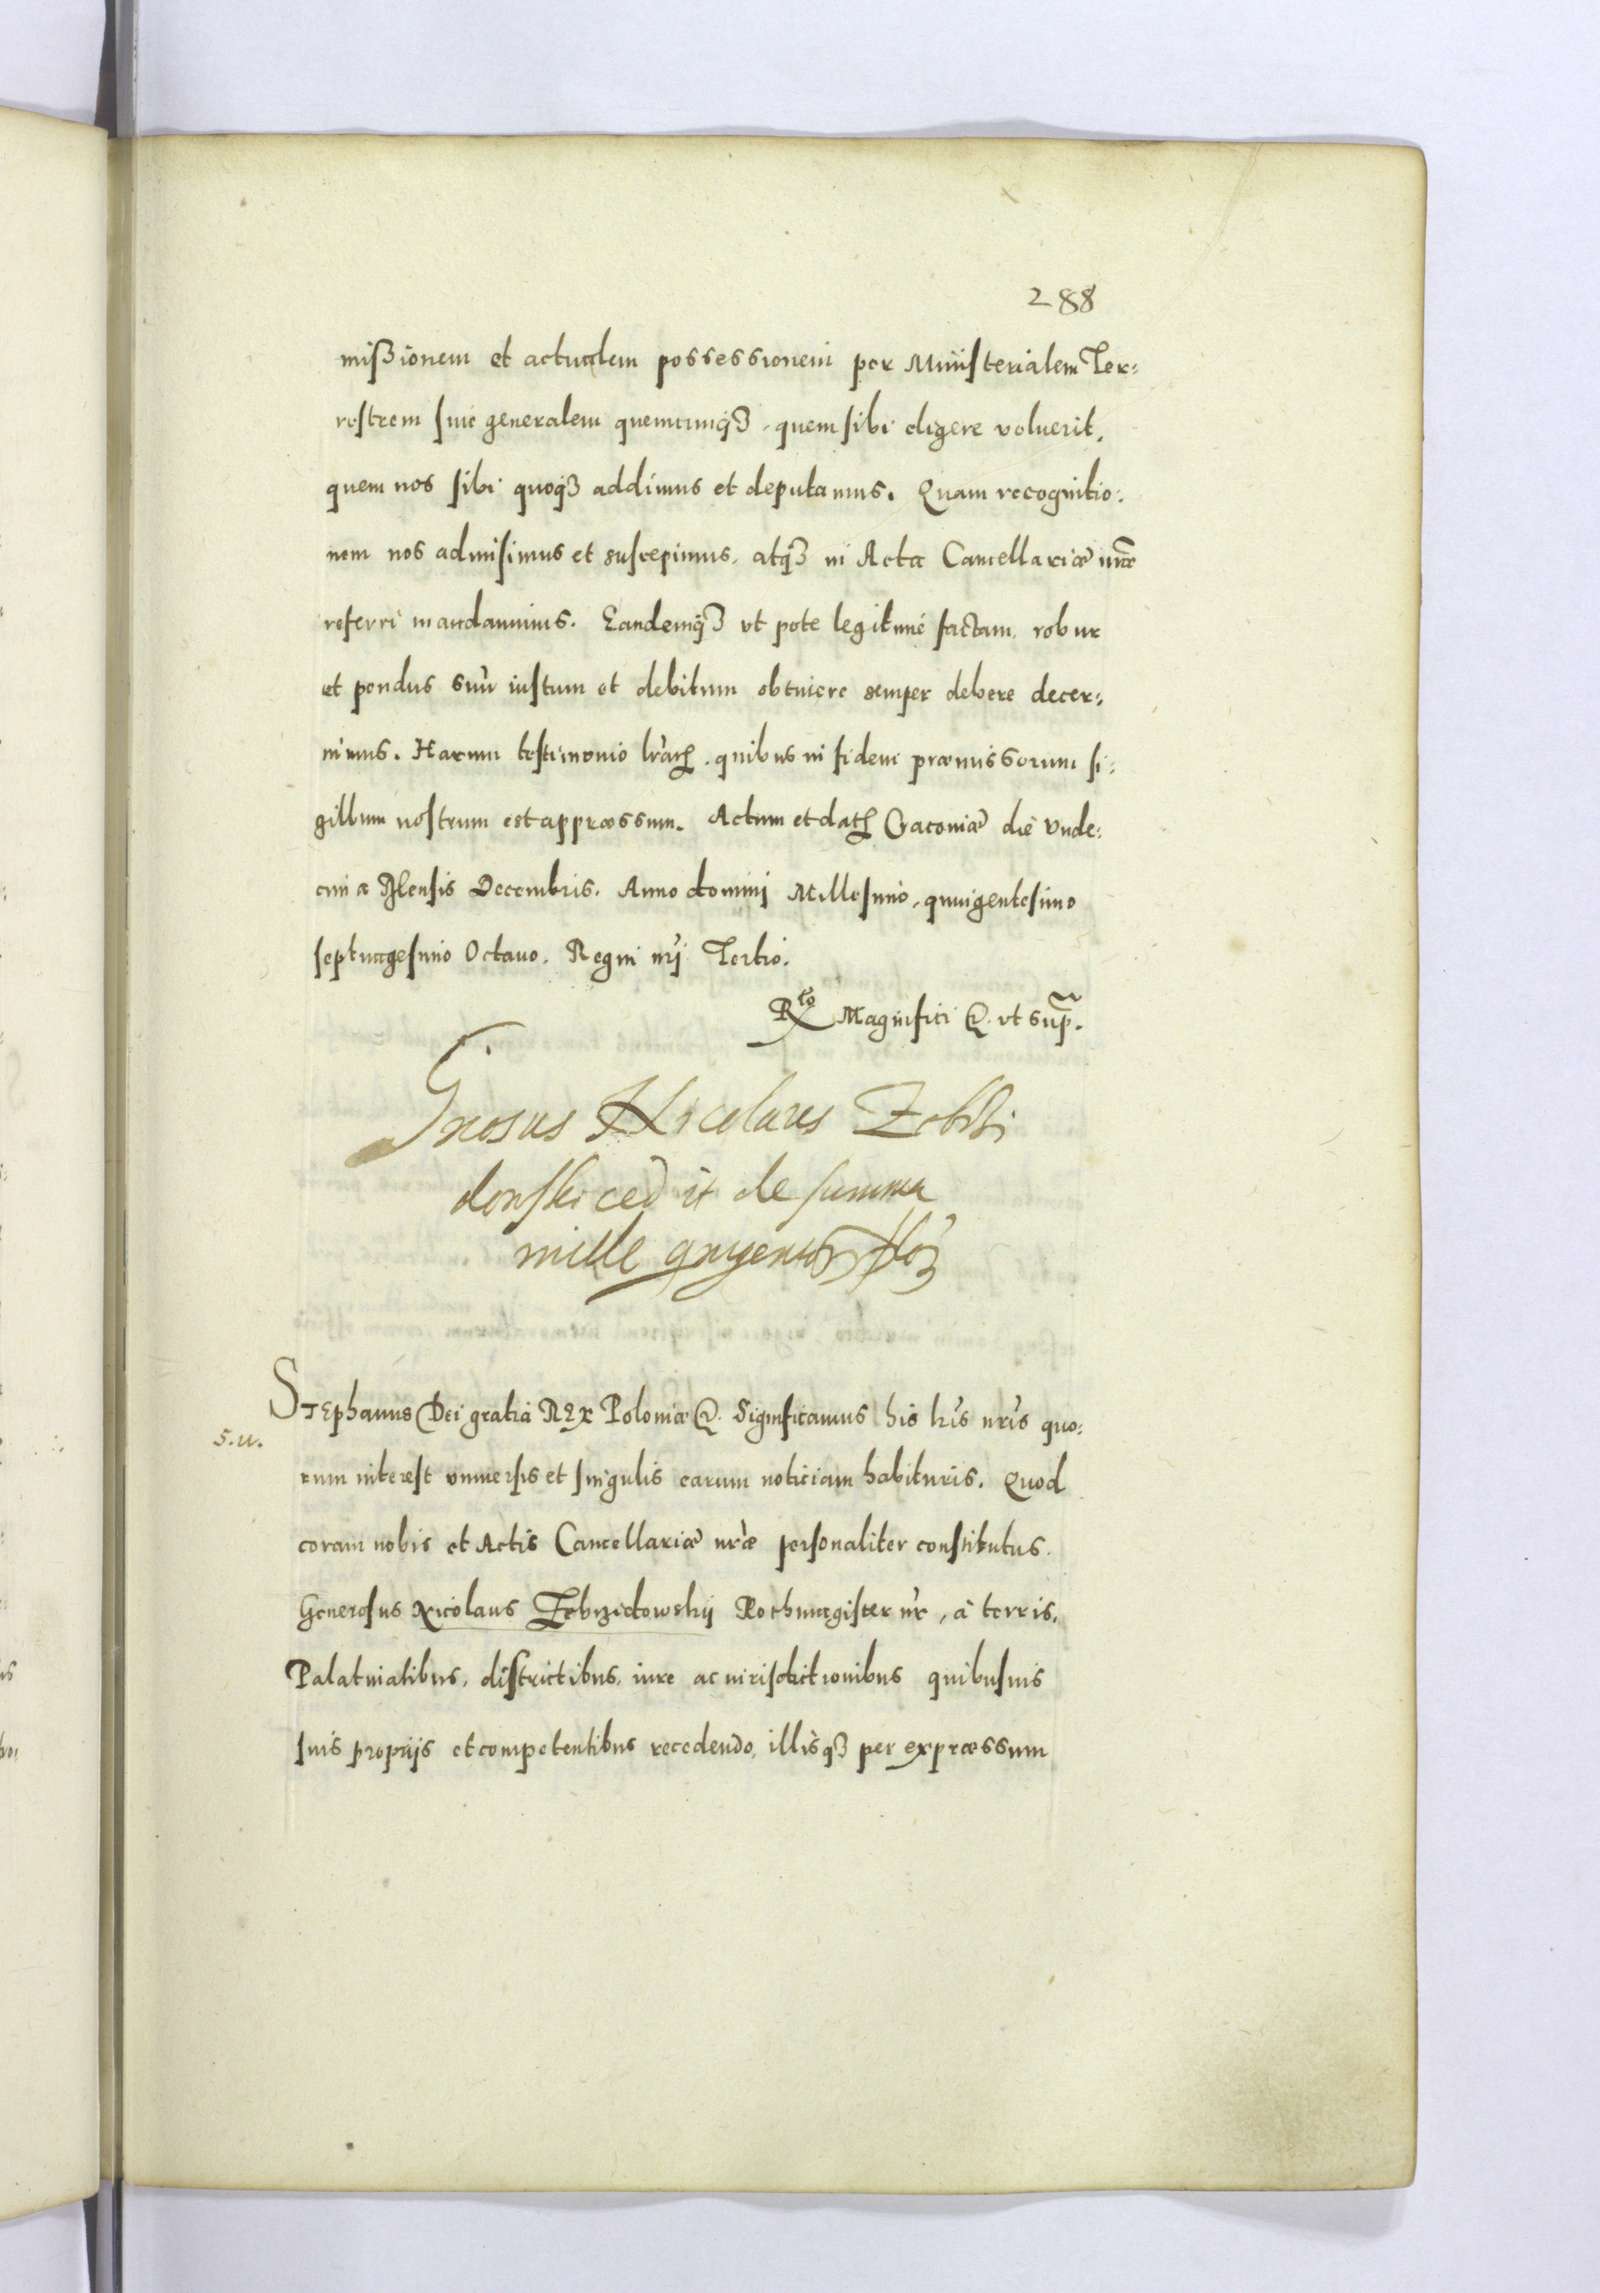 288
mißionem et actualem possessionem per Ministerialem Ter:
restrem siue generalem quemcunqꝫ, quem sibi eligere voluerit,
quem nos sibi quoqꝫ addimus et deputamus. Quam recognitio:
nem nos admisimus et suscepimus, atqꝫ in Acta Cancellariæ nr̃æ
referri mandauimus. Eandemqꝫ vt pote legitimè factam, robur
et pondus suũ iustum et debitum obtinere semper debere decer:
nimus. Harum testimonio lr̃arꝝ, quibus in fidem præmissorum si:
gillum nostrum est appræssum. Actum et datꝝ Cracouiæ die Vnde:
cima Mensis Decembris. Anno domini Millesimo, quingentesimo
septuagesimo Octauo. Regni nr̃j Tertio.
Rto Magnifici &. vt sup̃.
Gnosus Nicolaus Zebrzi
dowski cedit de summa
mille quingentor flor
Stephanus Dei gratia Rex Poloniæ &. Significamus his lr̃is nr̃is quo:
S.u.
rum interest vniuersis et singulis earum noticiam habituris. Quod
coram nobis et Actis Cancellariæ nr̃æ personaliter constitutus.
Generosus Nicolaus Zebrzidowskij Rothmagister nr̃, à terris,
Palatinatibus, districtibus, iure ac iurisdictionibus quibusuis
suis proprijs et competentibus recedendo, illisqꝫ per expræssum